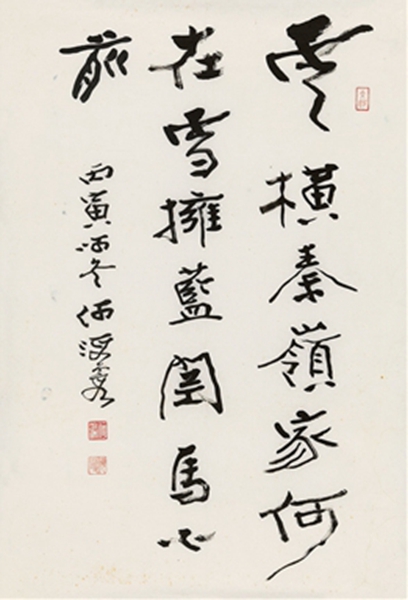 雲橫秦嶺家何
在雪擁藍關馬不
前
丙寅冬何海霞